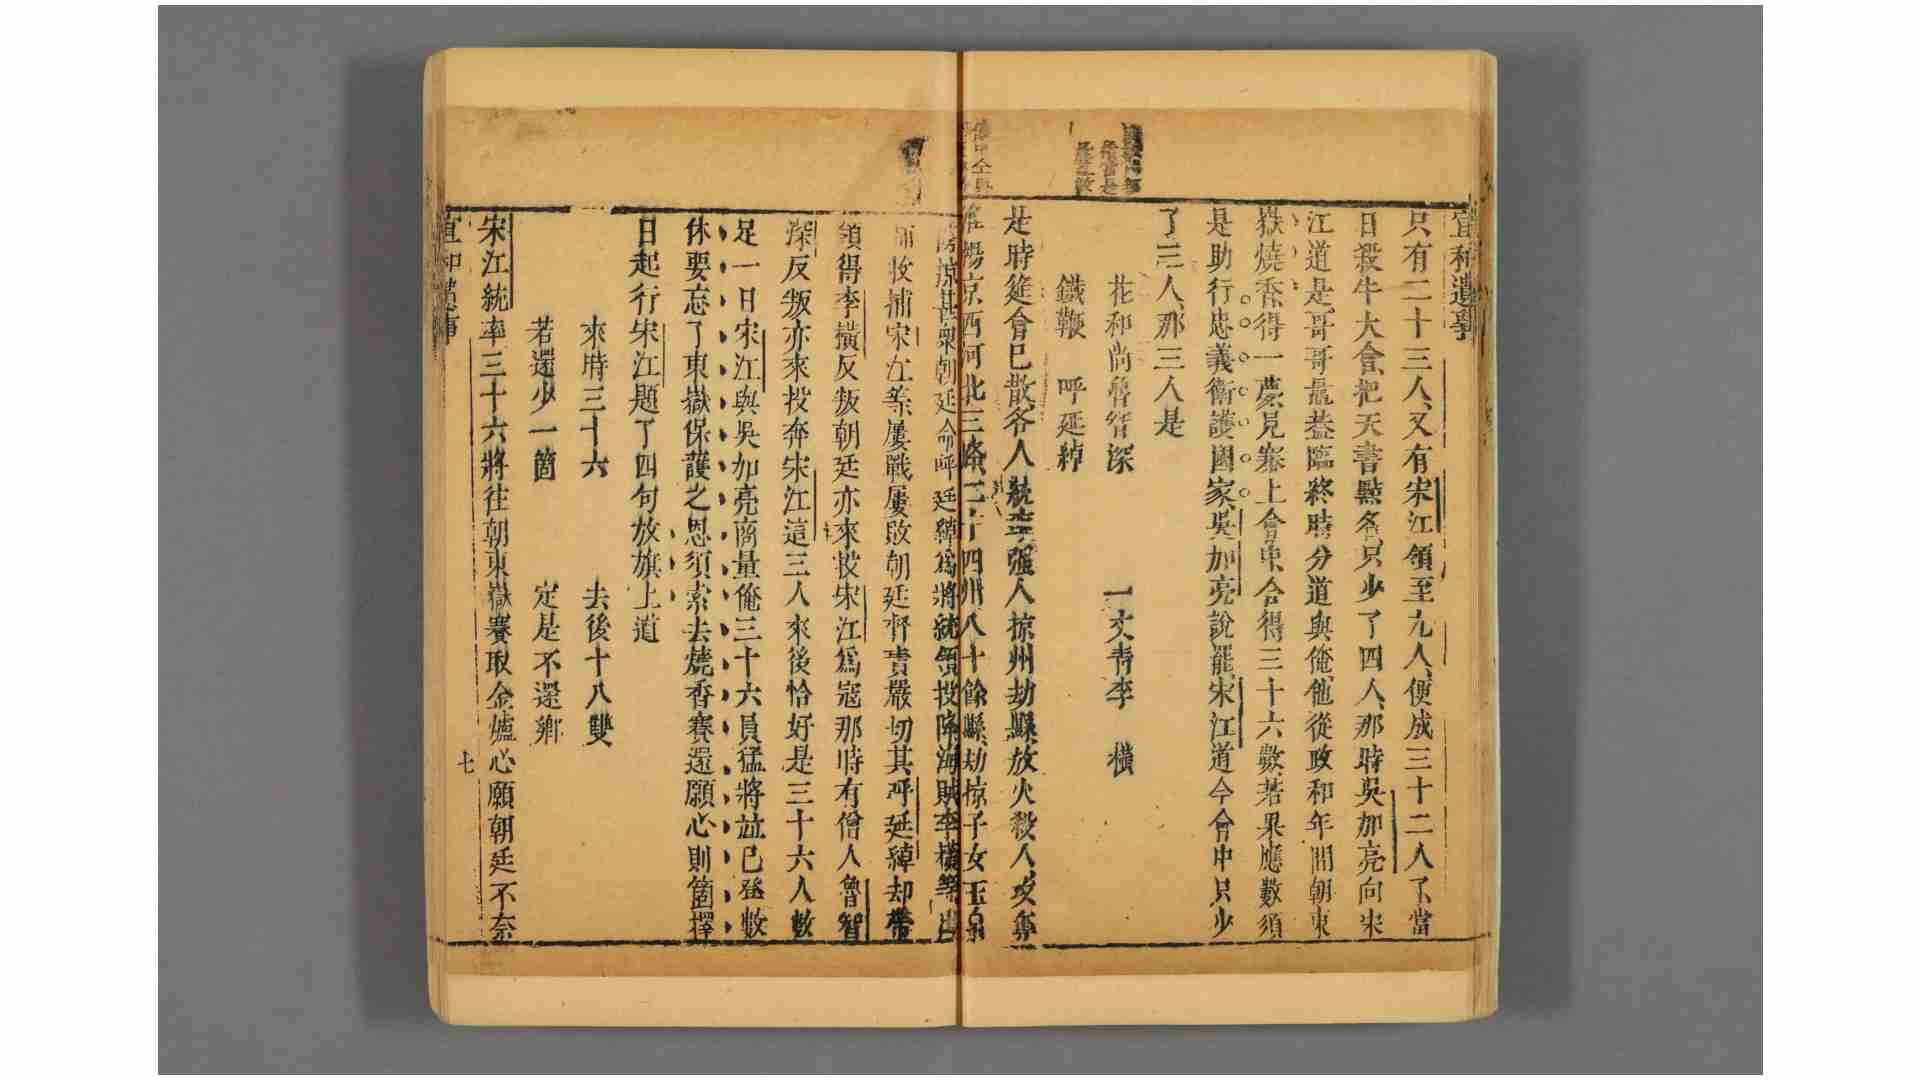 宣和遺事
只有二十三人、又有宋江領至九人、便成三十二人了、當
日殺牛大會、把天書點名、只少了四人、那時吳加亮向宋
江道是哥哥晁蓋臨終時分道與俺、他從政和年間朝東
嶽燒香、得一夢、見寨上會中合得三十六數、若果應數、須
是助行忠義、衛護國家、吳加亮說罷、宋江道今會中只少
了三人、那三人是
花和尚魯智深 一丈青李橫
鐵鞭 呼延綽
是時筵會已散、各人統率强人、掠州劫縣、放火殺人、攻奪
淮揚京西河北三路二十四州八十餘縣、劫掠子女玉帛
掠甚衆朝廷命呼延綽爲將統領投降海賊李橫等出
師收捕宋江等屢戰屢敗朝廷督責嚴切其呼延綽却帶
領得李橫反叛朝廷亦來投宋江爲寇那時有僧人魯智
深反叛亦來投奔宋江這三人來後恰好是三十六人數
足一日宋江與吳加亮商量俺三十六員猛將並已登數
休要忘了東嶽保護之恩須索去燒香賽還願心則箇擇
日起行宋江題了四句放旗上道
來時三十六 去後十八雙
若還少一箇 定是不還鄉
宋江統率三十六將往朝東嶽賽取金爐心願朝廷不奈
七